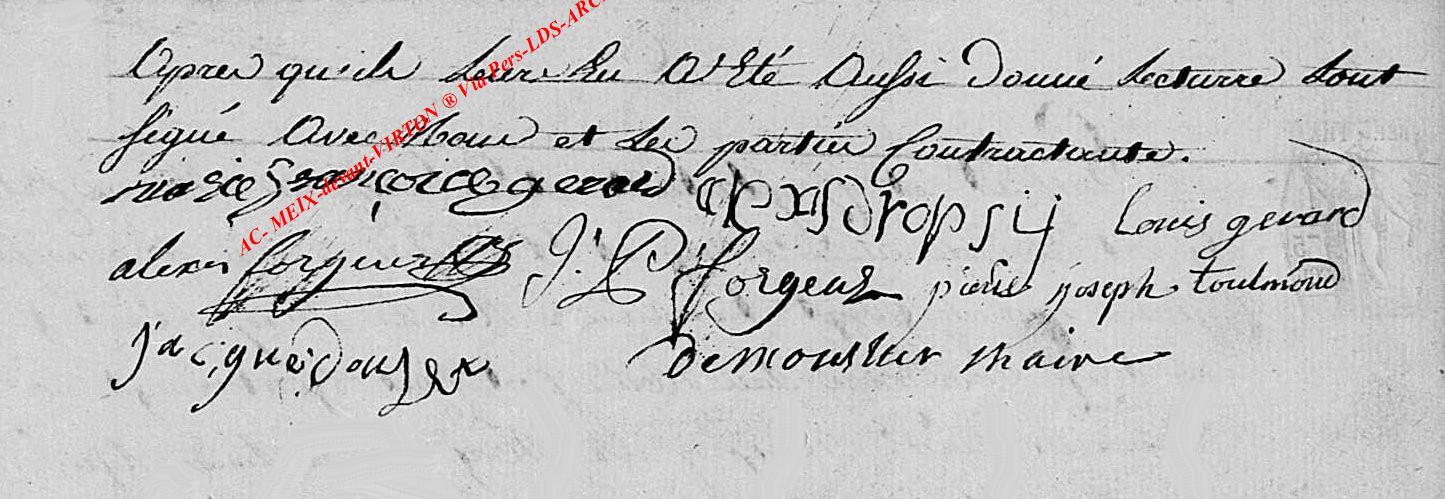 Apres qu'ils Leur En a Eté Aussi Donné Lecturre L'ont
signé Avec Nous et Les partie Contractante.
marie Françoise gerard alexis Dropsy Louis gerard
alexis forgeur J. P. forgeur pierre joseph toulmond
jacque
Demoustier Maire
AC- MEIX-devant-VIRTON ® Via Pers-LDS-ARC